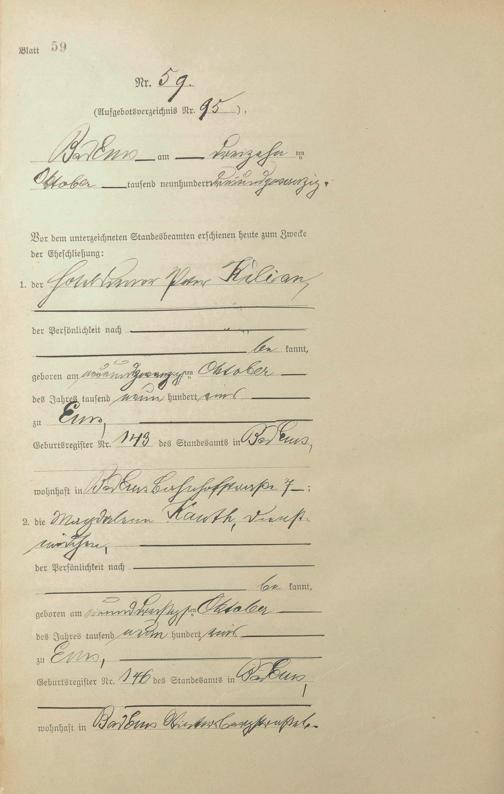 Blatt 59
Nr. 59.
(Aufgebotsverzeichnis Nr. 95).
Bad Ems am dreizehn ten
Oktober tausend neunhundert
Vor dem unterzeichneten Standesbeamten erschienen heute zum Zwecke
der Eheschließung:
1. der Peter Kilian,
der Persönlichkeit nach
be kannt,
geboren am ten Oktober
des Jahres tausend neun hundert eins
zu Ems,
Geburtsregister Nr. 143 des Standesamts in Bad Ems,
wohnhaft in Bad Ems Bahnhofstraße 7 ;
2. die Magdalena Kauth, Dienst-
mädchen,
der Persönlichkeit nach
be kannt,
geboren am ten Oktober
des Jahres tausend neun hundert eins
zu Ems,
Geburtsregister Nr. 146 des Standesamts in Bad Ems,
wohnhaft in Bad Ems